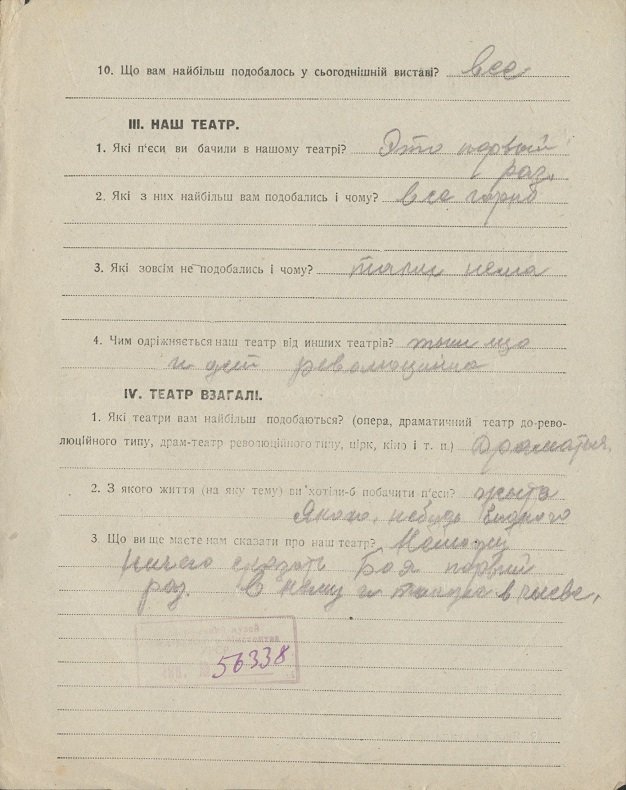 10. Що вам найбільш подобалось у сьогоднішній виставі? все
III. НАШ ТЕАТР.
1. Які п'єси ви бачили в нашому театрі? Это первый
раз.
2. Які з них найбільш вам подобались і чому? все гарно
3. Які зовсім не подобались і чому? таких нема
4. Чим одріжняється наш театр від инших театрів? тим що
революцийна
IV. ТЕАТР ВЗАГАЛІ.
1. Які театри вам найбільш подобаються? (опера, драматичний театр до-рево-
люційного типу, драм-театр революційного типу, цірк, кіно і т. п.)
2. З якого життя (на яку тему) ви хотіли-б побачити п'єси?
Якого, небудь бидного
3. Що ви ще маєте нам сказати про наш театр?
ничего сказать Бо я первий
раз. в нему и в
56338